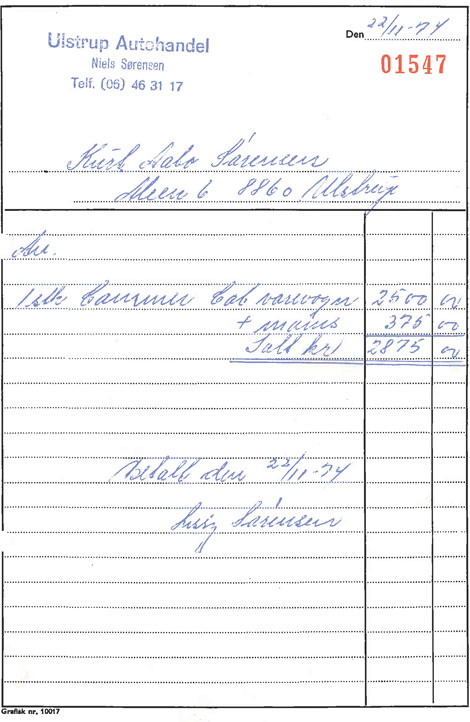 Ulstrup Autohandel
Niels Sørensen
Telf. (06) 46 31 17
Den 22/11-74
01547
Kurt Aabo Sørensen
Aleen 6 8860 Ulstrup
An.
1 stk varevogn 2500 00
+ moms 375 00
Ialt kr 2875 00
Betalt den 22/11-74
Sørensen
Grafisk nr. 10017